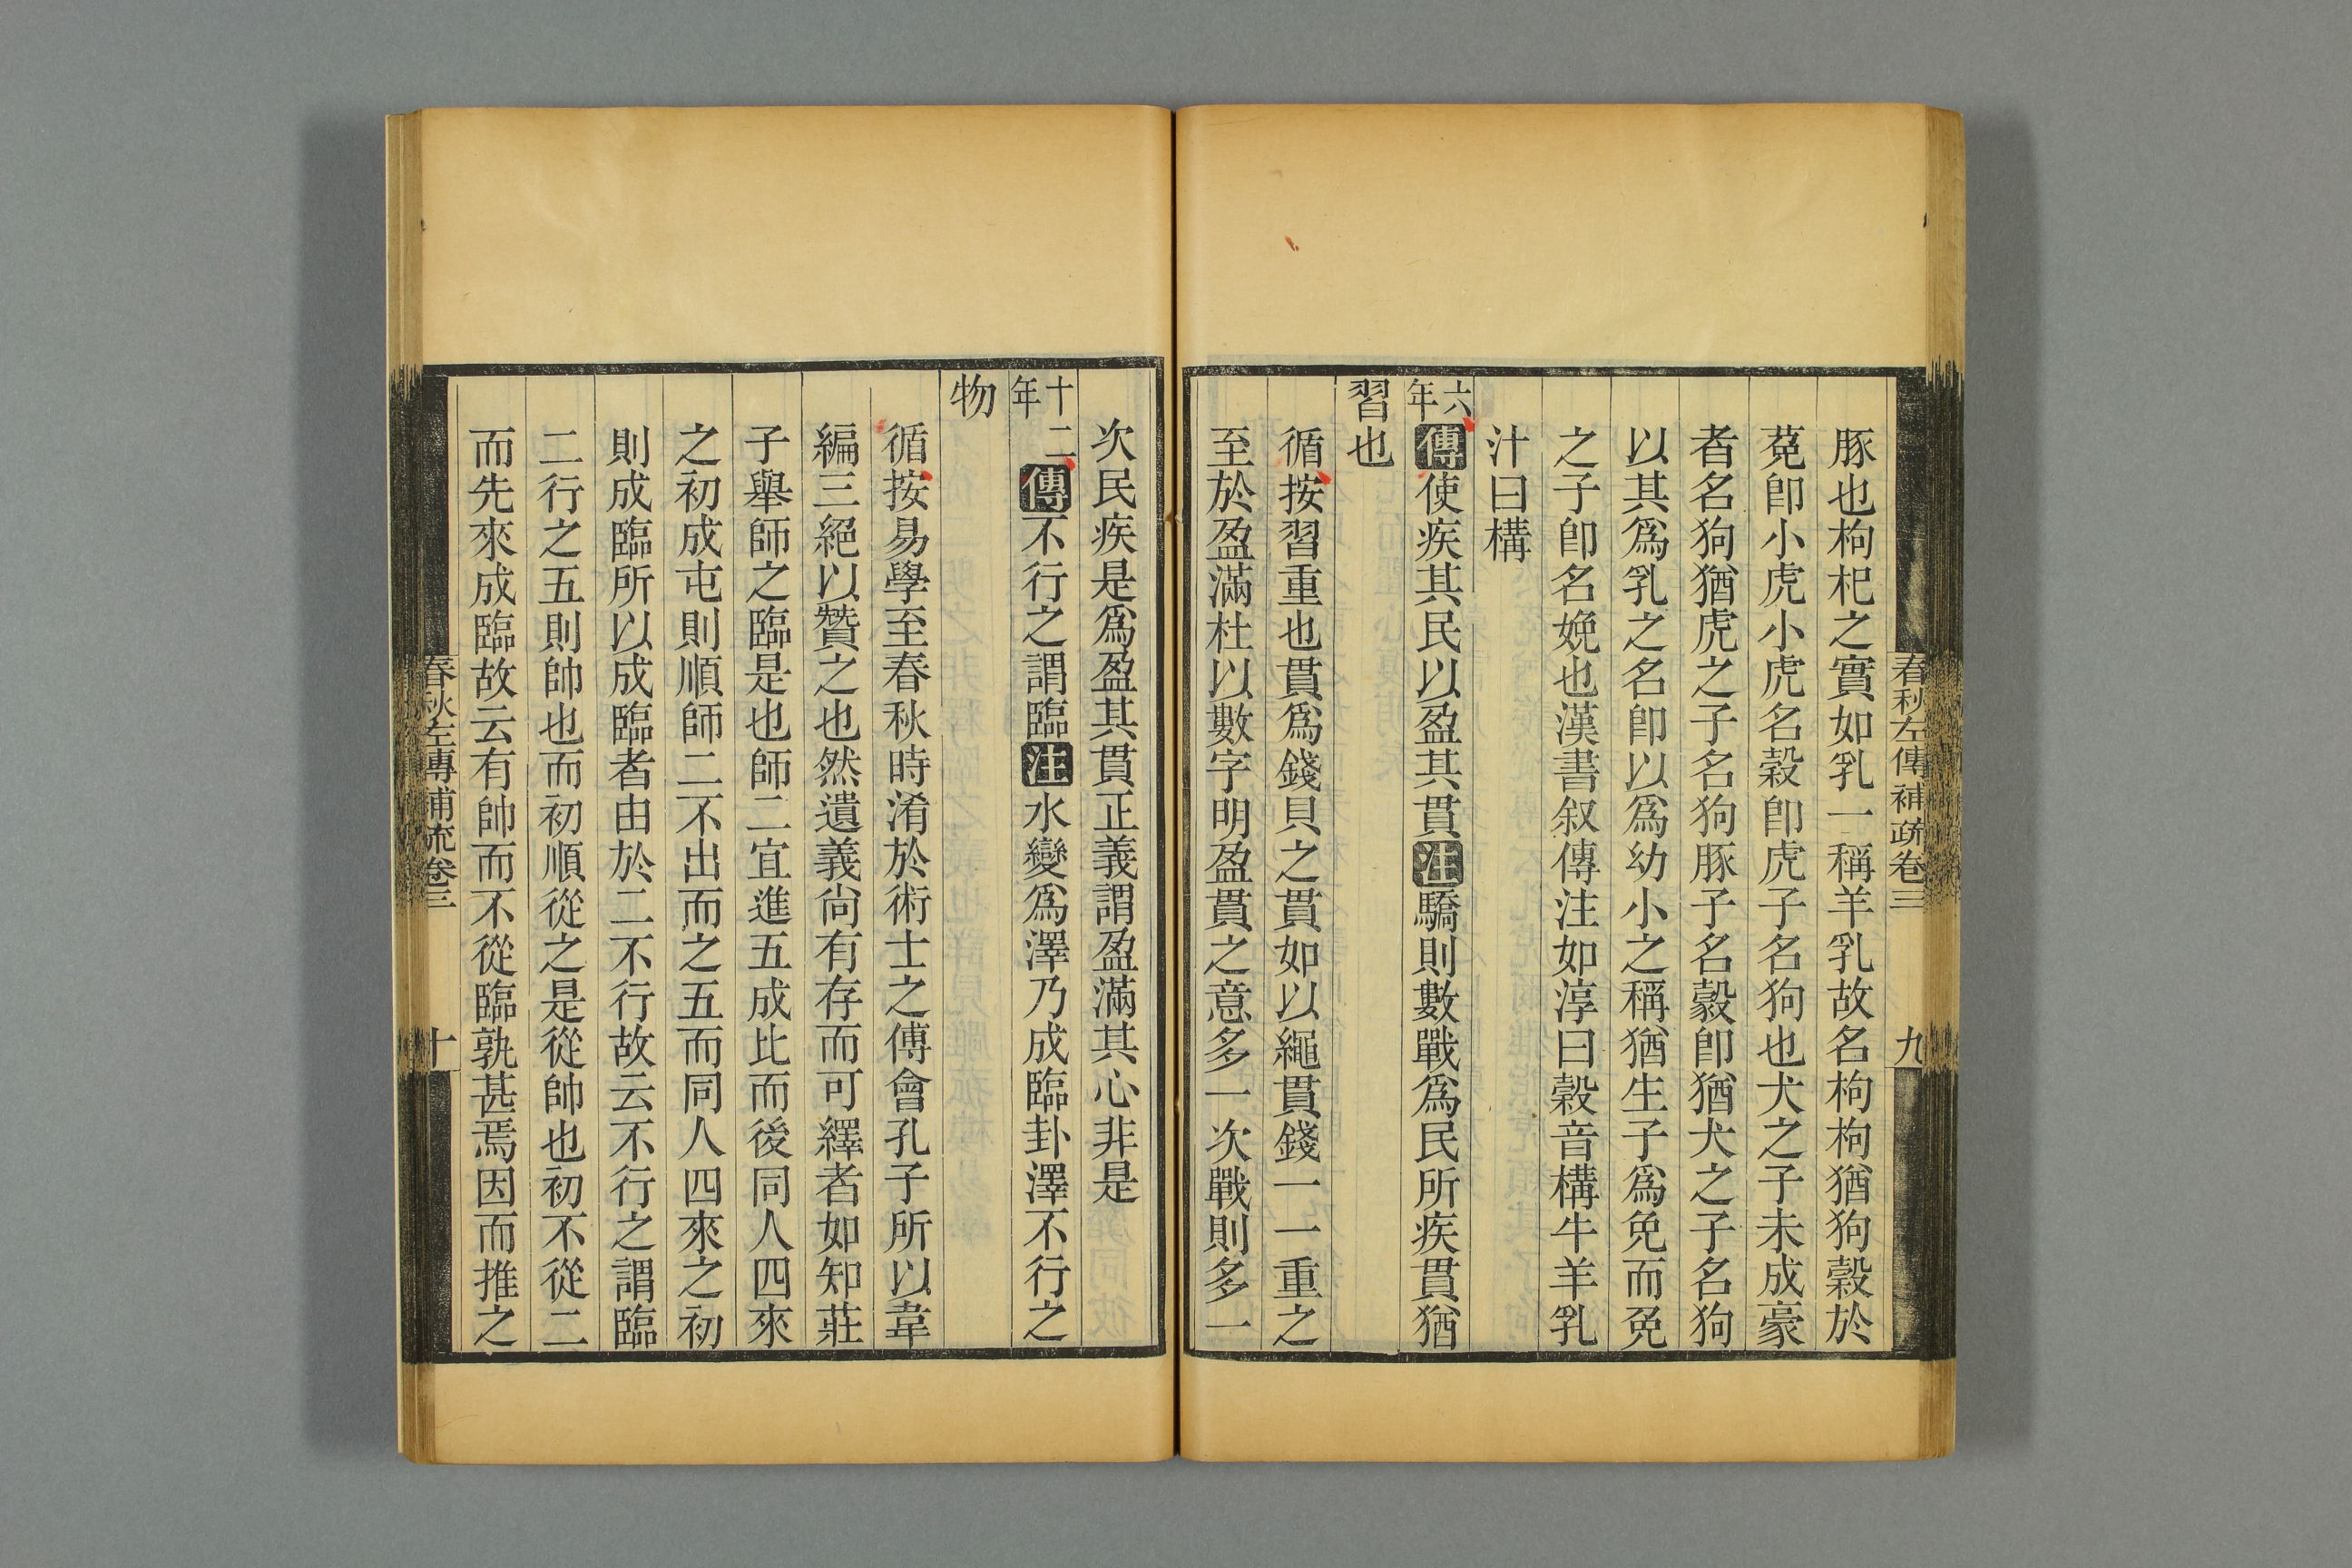 春秋左傳補疏卷三 九
豚也枸杞之實如乳一稱羊乳故名枸枸猶狗穀於
菟卽小虎小虎名穀卽虎子名狗也犬之子未成豪
者名狗猶虎之子名狗豚子名豰卽猶犬之子名狗
以其爲乳之名卽以爲幼小之稱猶生子爲免而㝃
之子卽名娩也漢書叙傳注如淳曰穀音構牛羊乳
汁曰構
六年傳使疾其民以盈其貫注驕則數戰爲民所疾貫猶
習也
循按習重也貫爲錢貝之貫如以繩貫錢一一重之
至於盈滿杜以數字明盈貫之意多一次戰則多一
次民疾是爲盈其貫正義謂盈滿其心非是
十二年傳不行之謂臨注水變爲澤乃成臨卦澤不行之
物
循按易學至春秋時淆於術士之傅會孔子所以韋
編三絕以贊之也然遺義尙有存而可繹者如知莊
子舉師之臨是也師二宜進五成比而後同人四來
之初成屯則順師二不出而之五而同人四來之初
則成臨所以成臨者由於二不行故云不行之謂臨
二行之五則帥也而初順從之是從帥也初不從二
而先來成臨故云有帥而不從臨孰甚焉因而推之
春秋左傳補疏卷三 十